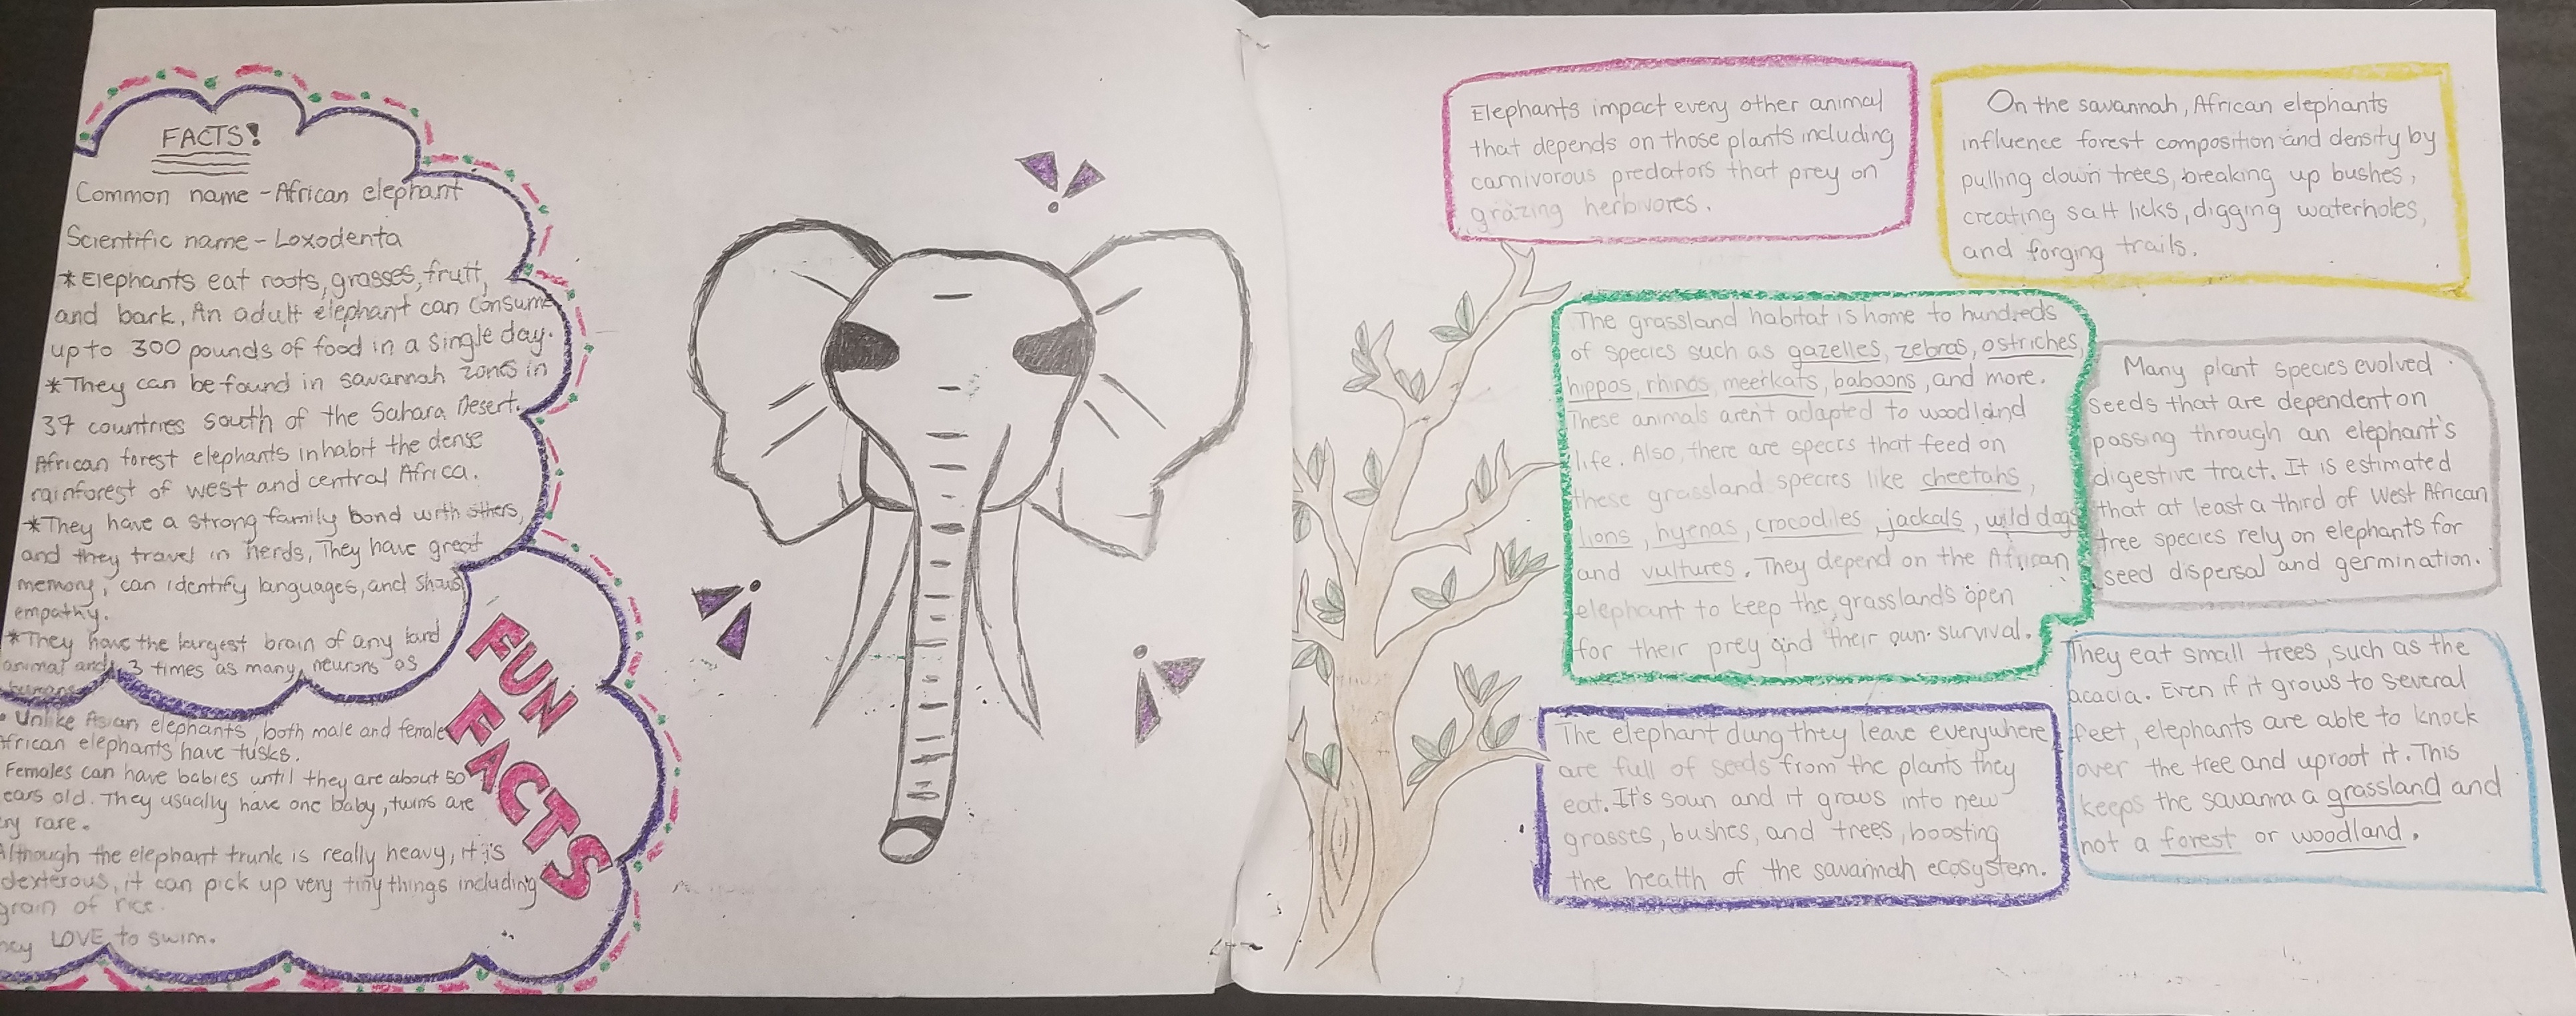 FACTS!
Common name - African elephant
Scientific name - Loxodenta
*Elephants eat roots, grasses, fruit,
and bark. An adult elephant can consume
up to 300 pounds of food in a single day.
*They can be found in savannah zones in
37 countries south of the Sahara Desert.
African forest elephants inhabit the dense
rainforest of west and central Africa.
*They have a strong family bond with others,
and they travel in herds, They have great
memory, can identify languages, and show
empathy.
*They have the largest brain of any land
animal and 3 times as many neurons as
humans
FUN
FACTS
• Unlike Asian elephants, both male and female
African elephants have tusks.
Females can have babies until they are about 50
old. They usually have one baby, twins are
rare.
Although the elephant trunk is really heavy, it is
dexterous, it can pick up very tiny things including
grain of rice.
LOVE to swim.
Elephants impact every other animal
that depends on those plants including
carnivorous predators that prey on
grazing herbivores.
On the savannah, African elephants
influence forest composition and density by
pulling down trees, breaking up bushes,
creating salt licks, digging waterholes,
and forging trails.
The grassland habitat is home to hundreds
of species such as gazelles, zebras, ostriches,
hippos, rhinos, meerkats, baboons, and more.
These animals aren't adapted to woodland
life. Also, there are species that feed on
these grassland species like cheetahs,
lions, hyenas, crocodiles, jackals, wild dogs
and vultures. They depend on the African
elephant to keep the grasslands open
for their prey and their own survival.
Many plant species evolved
seeds that are dependent on
passing through an elephant's
digestive tract. It is estimated
that at least a third of West African
tree species rely on elephants for
seed dispersal and germination.
The elephant dung they leave everywhere
are full of seeds from the plants they
eat. It's soun and it grows into new
grasses, bushes, and trees, boosting
the health of the savannah ecosystem.
They eat small trees, such as the
acacia. Even if it grows to several
feet, elephants are able to knock
over the tree and uproot it. This
keeps the savanna a grassland and
not a forest or woodland.